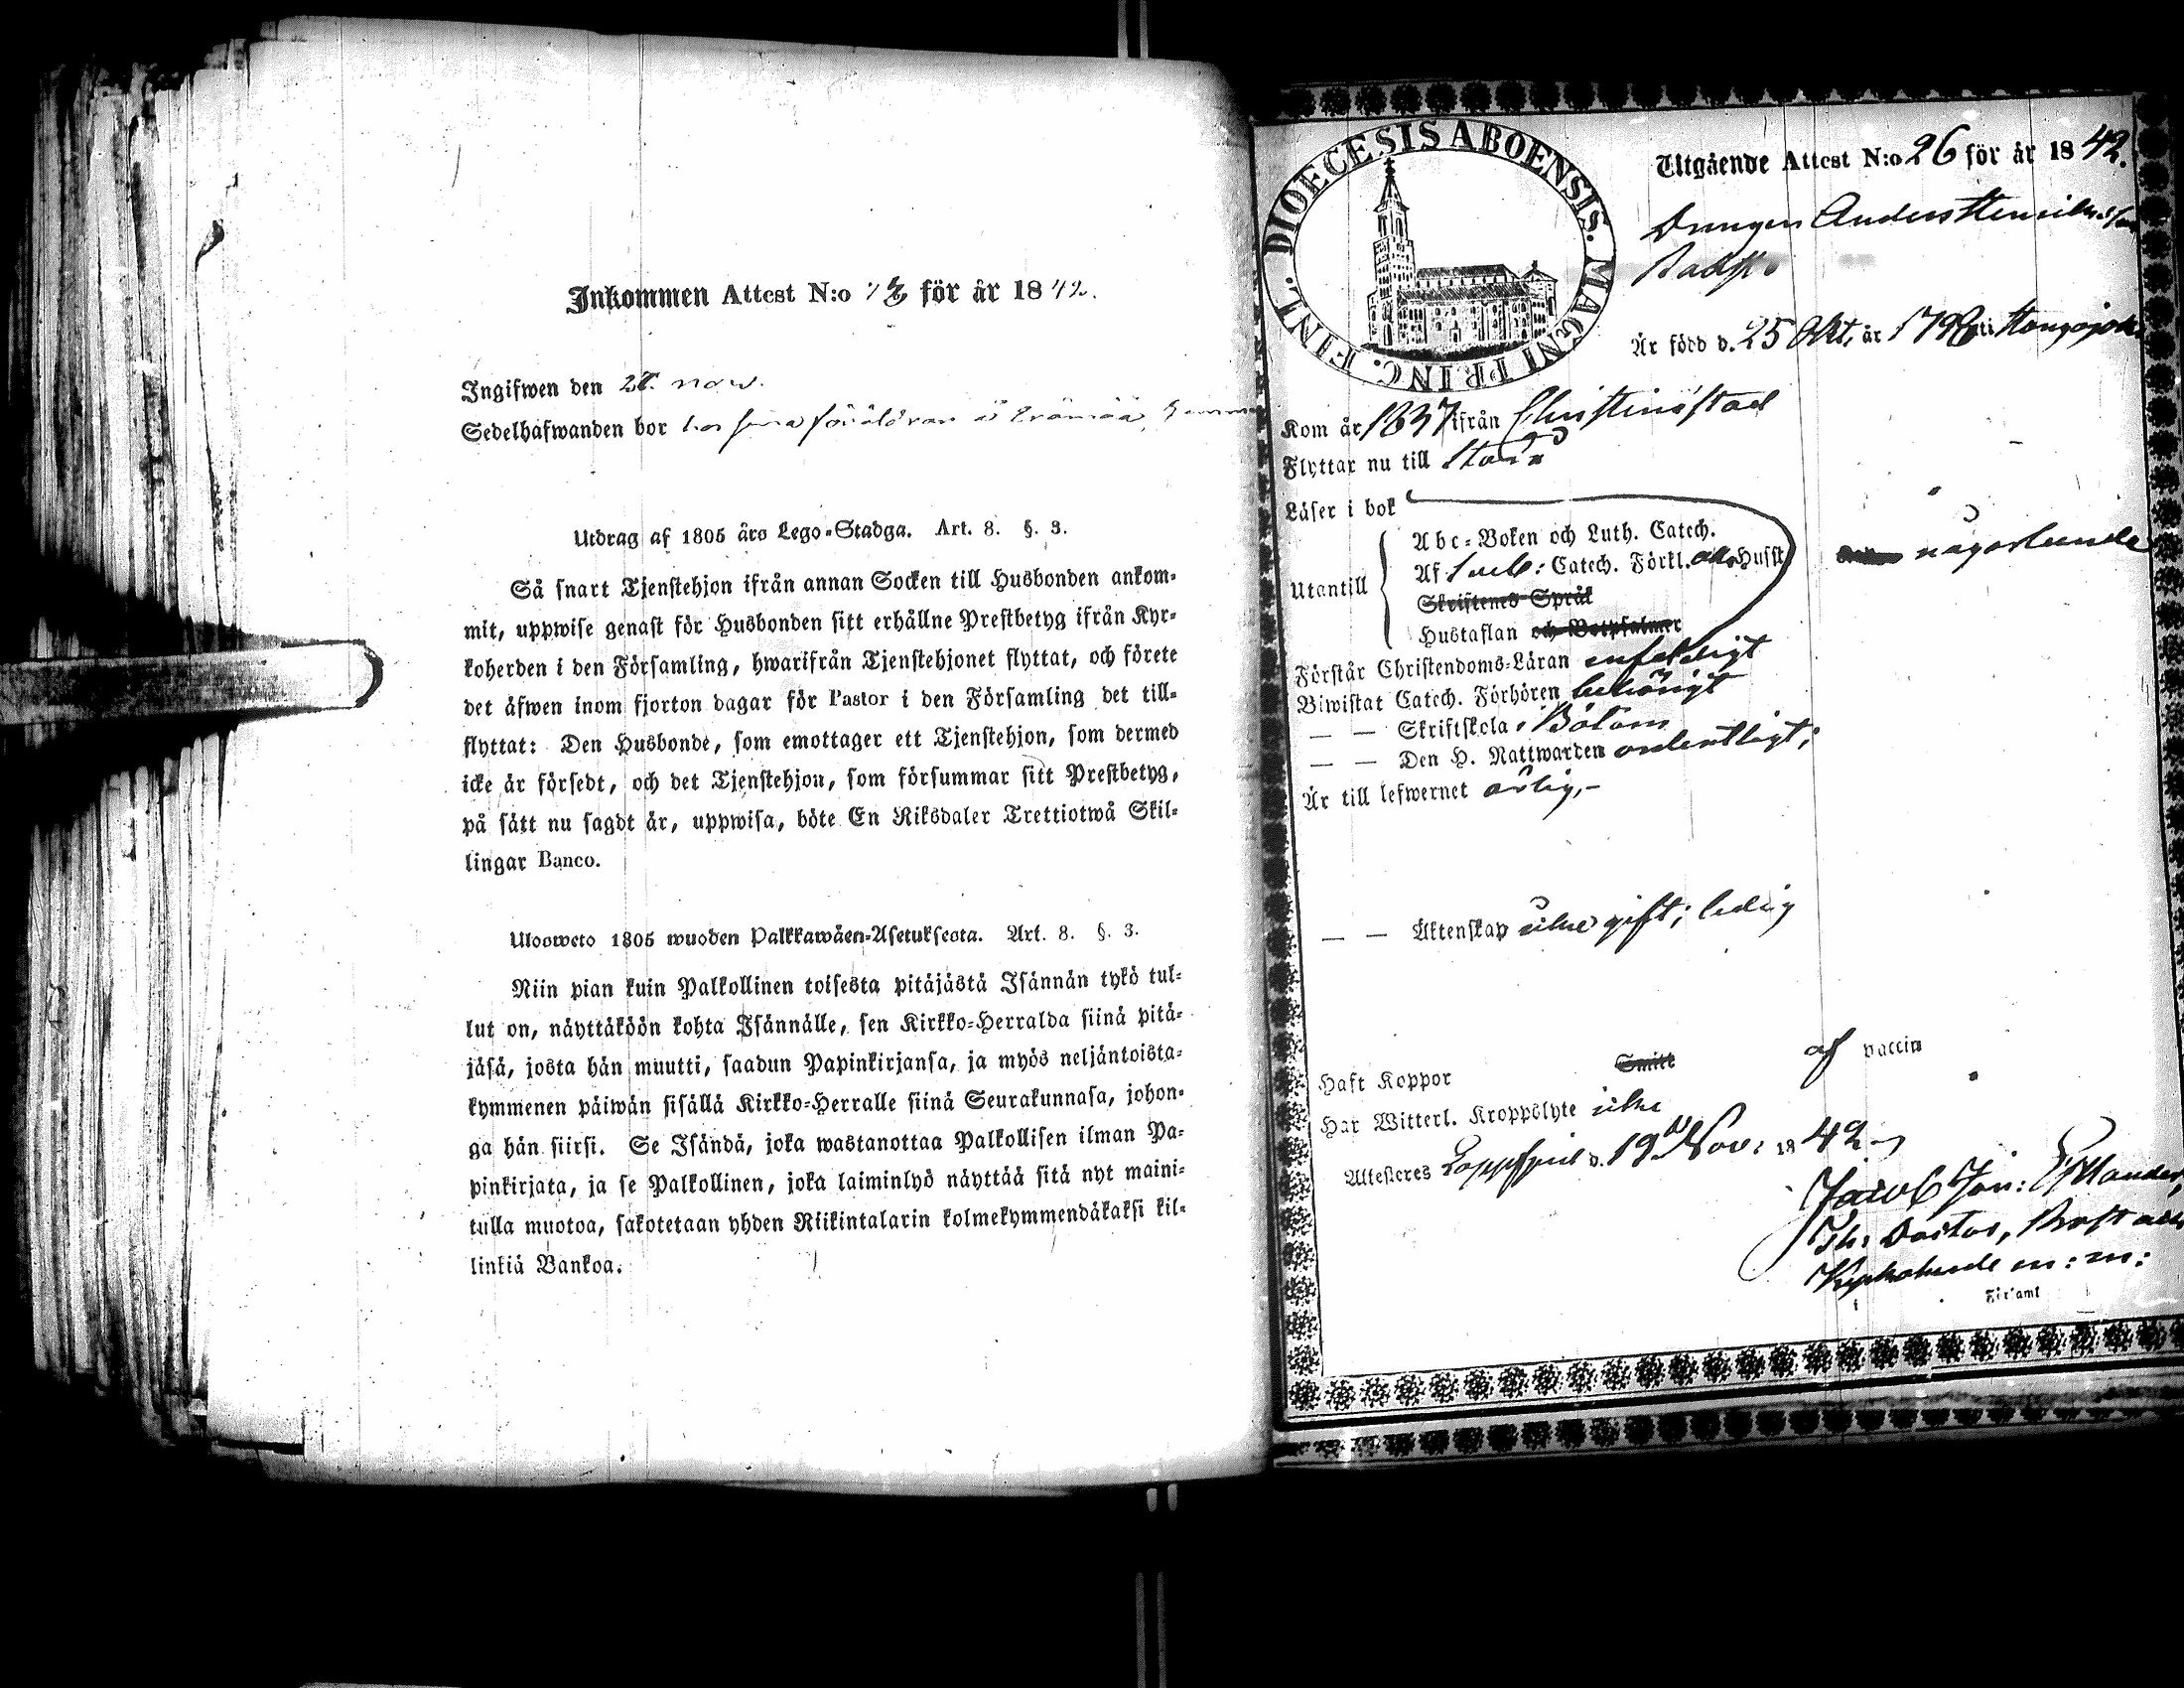 Inkommen Attest N:o för år 1842.
Ingifwen den nov.
Sedelhafwanden bor hos sina föräldrar
Utdrag af 1805 års Lego-Stadga. Art. 8. §. 3.
Så snart Tjenstehjon ifrån annan Socken till Husbonden ankom-
mit, uppwise genast för Husbonden sitt erhållne Prestbetyg ifrån Kyr-
koherden i den Församling, hwarifrån Tjenstehjonet flyttat, och förete
det äfwen inom fjorton dagar för Pastor i den Församling det till-
flyttat: Den Husbonde, som emottager ett Tjenstehjon, som dermed
icke är försedt, och det Tjenstehjon, som försummar sitt Prestbetyg,
på sätt nu sagdt är, uppwisa, böte En Riksdaler Trettiotwå Skil-
lingar Banco.
Ulosweto 1805 wuoden Palkkawäen-Asetuksesta. Art. 8. §. 3.
Niin pian kuin Palkollinen toisesta pitäjästä Isännän tykö tul-
lut on, näyttäköön kohta Isännälle, sen Kirkko-Herralda siinä pitä-
jäsä, josta hän muutti, saadun Papinkirjansa, ja myös neljäntoista-
kymmenen päiwän sisällä Kirkko-Herralle siinä Seurakunnasa, johon-
ga hän siirsi. Se Isändä, joka wastanottaa Palkollisen ilman Pa-
pinkirjata, ja se Palkollinen, joka laiminlyö näyttää sitä nyt maini-
tulla muotoa, sakotetaan yhden Riikintalarin kolmekymmendäkaksi kil-
linkiä Bankoa.
DIOECESIS ABOENSIS. MAGNI PRINC. FINL.
Utgående Attest N:o 26 för år 1842.
Drengen Anders
Är född d. 25 Okt. år i
Kom år 1837 ifrån Christinestad
Flyttar nu till
Läser i bok
Utantill
Abc-Boken och Luth. Catech.
Af Sveb: Catech. Förkl. Hufst
någorlunda
Skriftenes Språk
Hustaflan och Botpsalmer
Förstår Christendoms-Läran enfaldigt
Biwistat Catech. Förhören behörigt
— — Skriftskola i Bötom
— — Den H. Nattwarden ordentligt;
Är till lefwernet ärlig,-
— — Äktenskap icke gift; ledig
Haft Koppor Smitt af vaccin
Har Witterl. Kroppslyte icke
Attesteres Lappfjerd d. 19 Nov: 1842
Jacob Jon: Estlander,
Th: Doctor, Prost och
Kyrkoherde m: m:
Församl